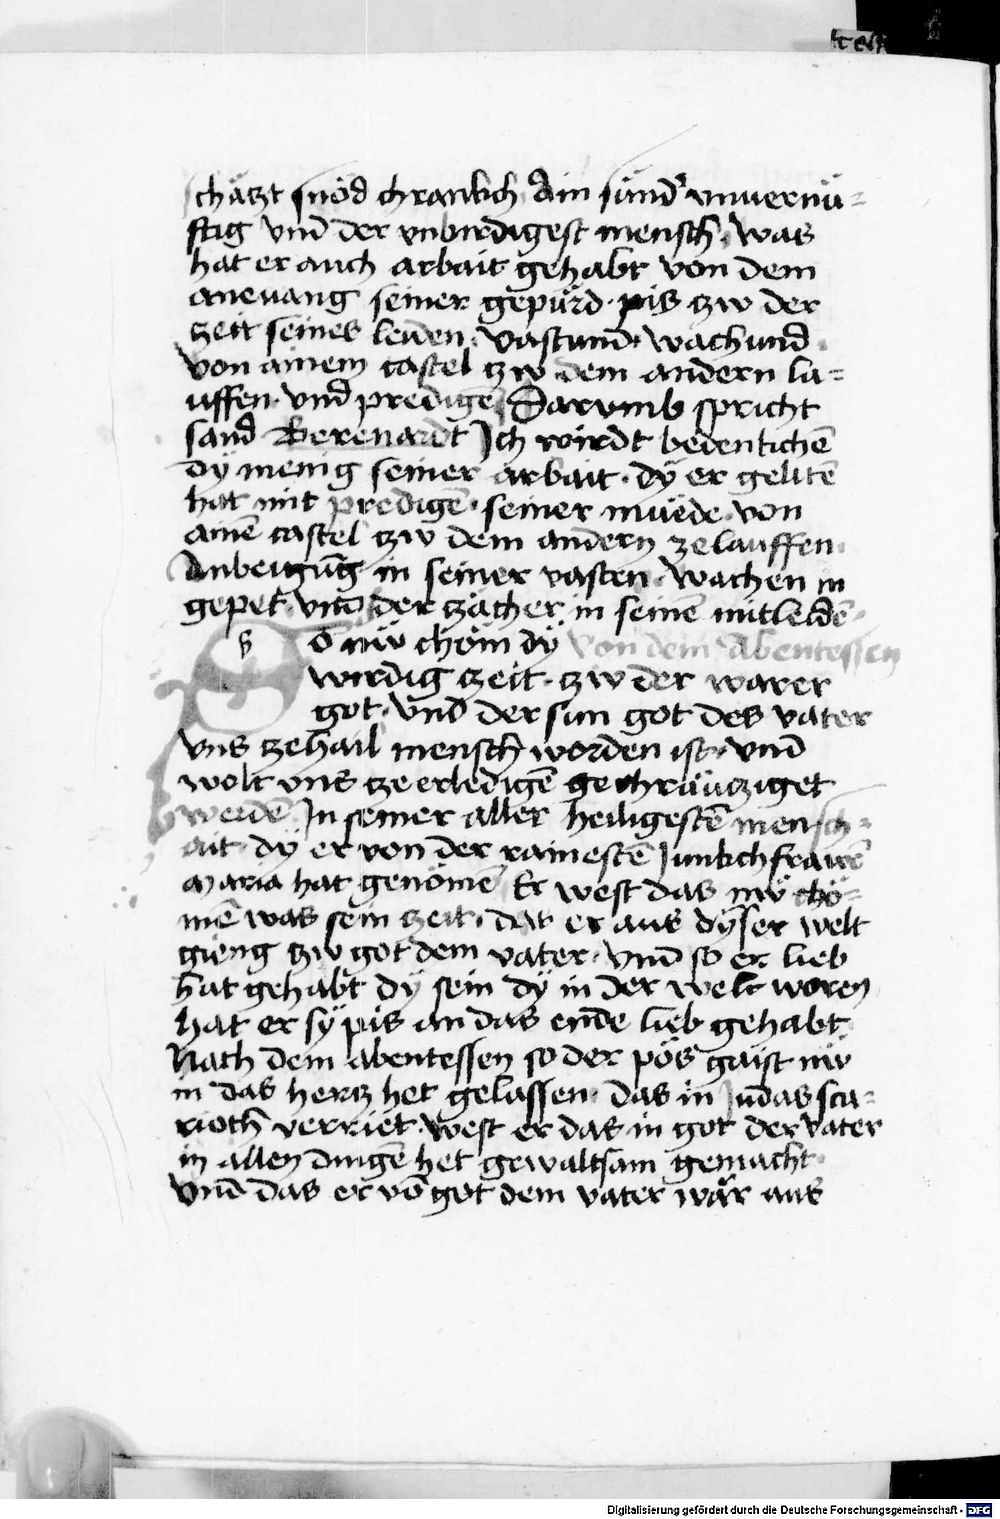 schätzt snöd chrankch Ain sünd' vnuernü-
ftig Vnd der vnbirdigest mensch. Was
hat er auch arbait gehabt von dem
anevang seiner gepürd. pis tzw der
zeit seines leiden. Vastund. Wachund.
Von ainem castel tzw dem andern la-
uffen. Vnd predigē Darvmb spricht
sand Berenardt Ich wirdt bedentkchē
dÿ menig seiner arbait. dÿ er gelitē
hat mit predigē. seiner müede. von
ainē castel tzw dem andern zelauffen.
Anbeigūg in seiner vasten. Wachen in
gepet. Vnd der zächer in seinē mitleidē.
So nüv chöm dÿ Von dem Abentessen
wirdig tzeit. tzw der warer
got. Vnd der sun got des vater
Vns tzehail mensch worden ist. Vnd
wolt vns tze erledigē gechräutziget
werdē In seiner aller heiligestē mensch-
ait. dÿ er von der rainestē Junkchfrawē
Maria hat genömē Er west das nüv chö-
mē was sein tzeit. dat er aus dÿser welt
gieng tzw got dem vater. Vnd so er lieb
hat gehabt dÿ sein dÿ in der welt woren
hat er sÿ pis an das ende lieb gehabt
Nach dem abentessen so der pös gaist nüv
in das hertz het gelassen. das in Judas sca-
rioth verriet. West er das in got der Vater
in allen dingē het gewaltsam gemacht.
Vnd das er vō got dem vater wär aus
Digitalisierung gefördert durch die Deutsche Forschungsgemeinschaft - DFG